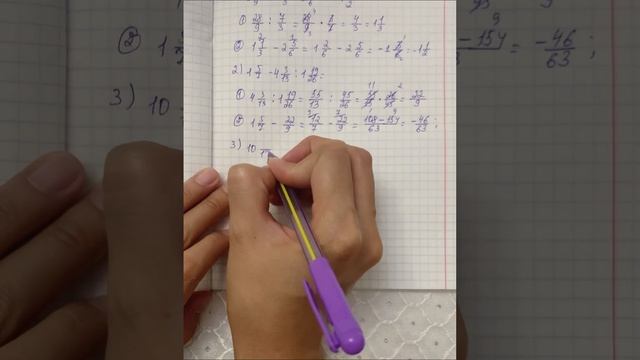 ① 28/9 : 7/3 = 28/9 · 3/7 = 4/3 = 1 1/3
② 1 1/3 - 2 5/6 = 1 2/6 - 2 5/6 = -1 3/6 = -1 1/2
2) 1 5/7 - 4 3/13 : 1 19/26 =
① 4 3/13 : 1 19/26 = 55/13 : 45/26 = 55/13 · 26/45 = 22/9
② 1 5/7 - 22/9 = 12/7 - 22/9 = 108-154/63 = -46/63 ;
3) 10